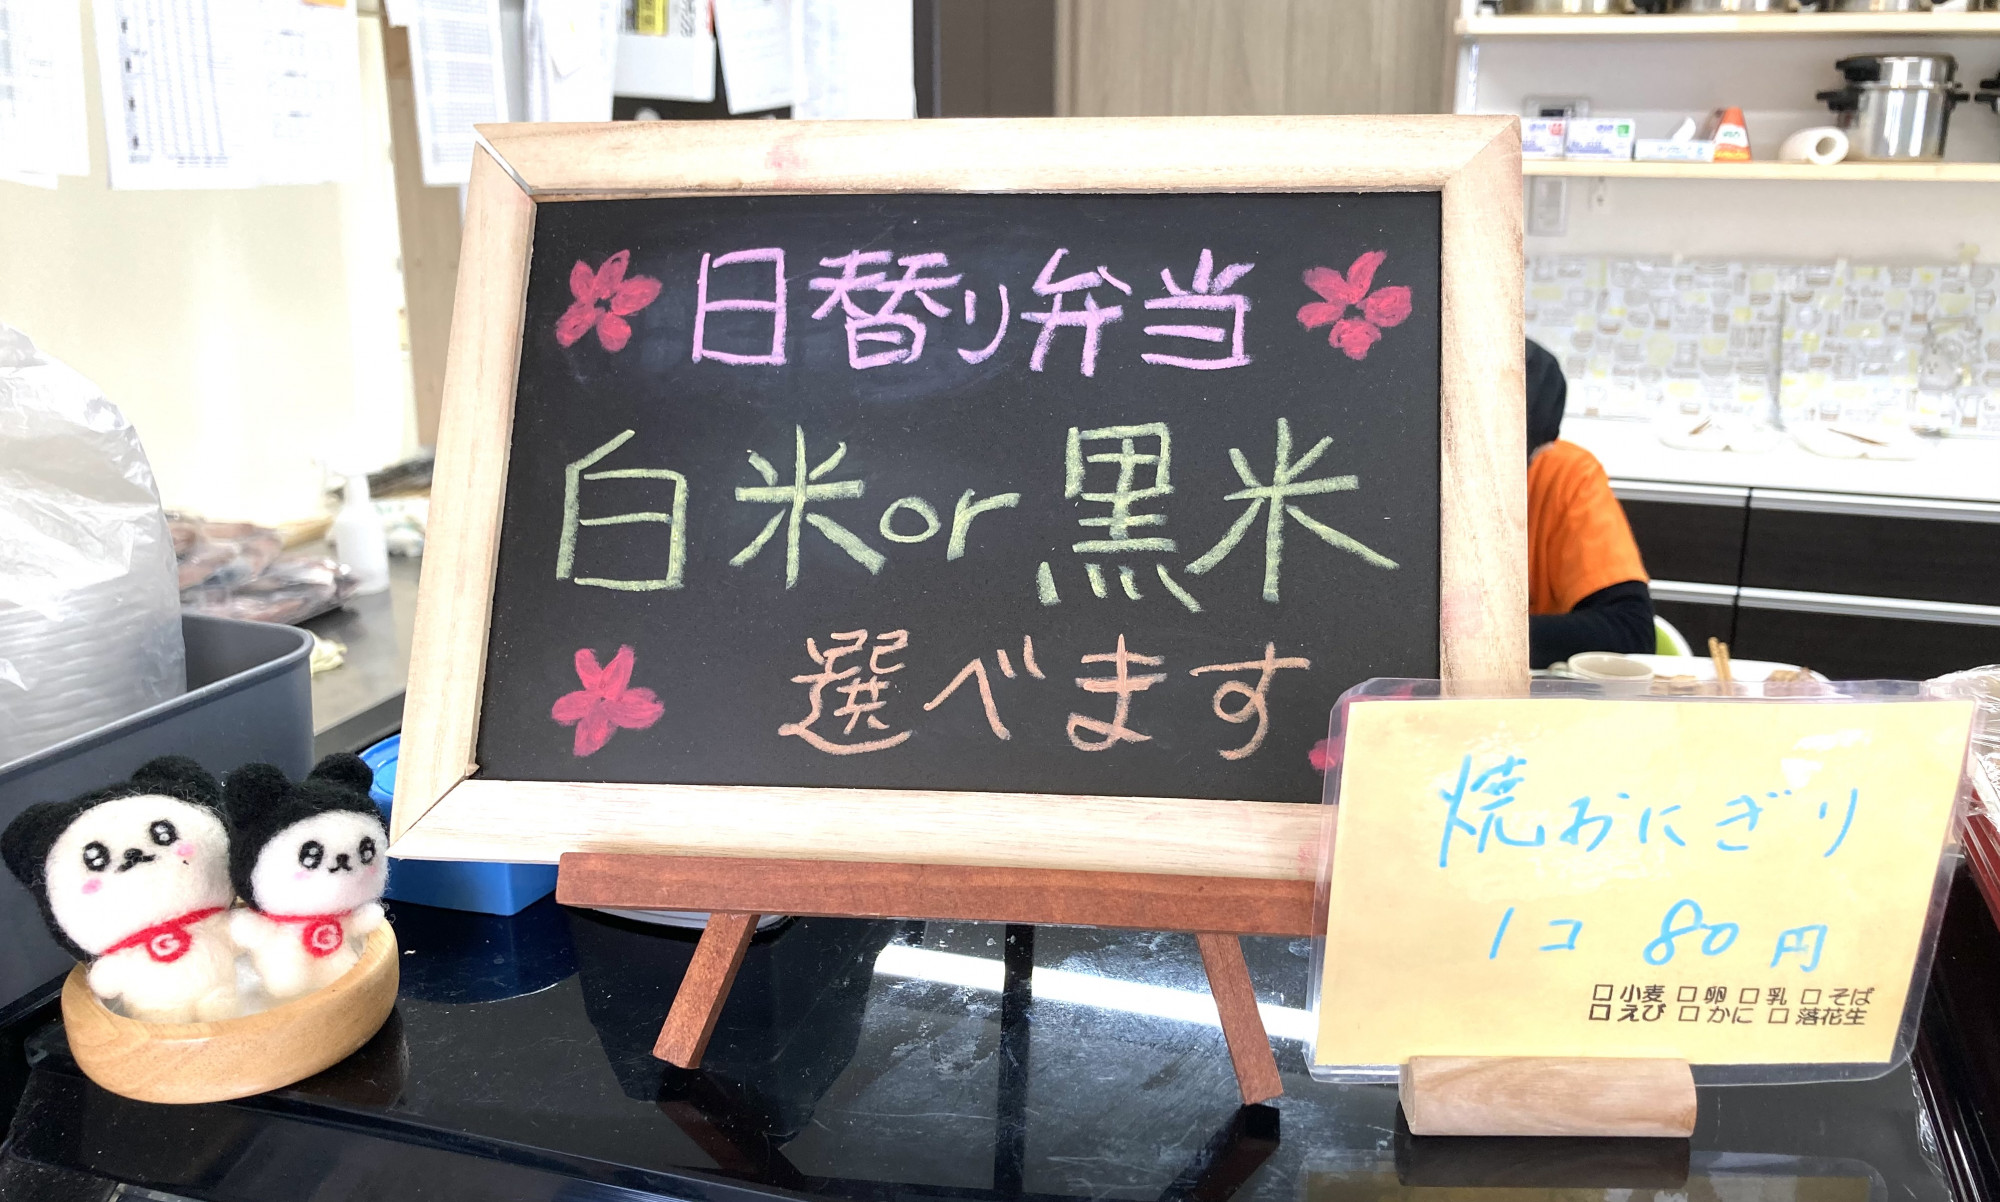 日替り弁当
白米or黒米
選べます
焼おにぎり
1コ 80円
□小麦 □卵 □乳 □そば
□えび □かに □落花生
G
G